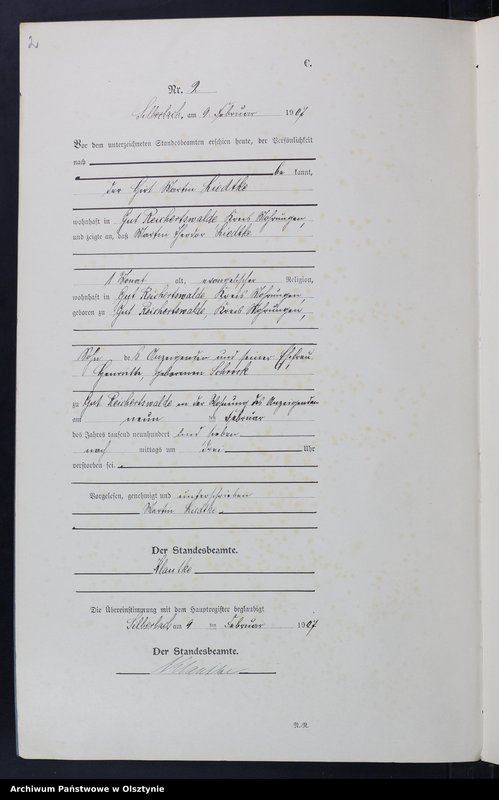 2
C.
Nr. 2
Silberbach, am 9. Februar 1907
Vor dem unterzeichneten Standesbeamten erschien heute, der Persönlichkeit
nach
be kannt,
der Hirt Martin Liedtke
wohnhaft in Gut Reichertswalde Kreis Mohrungen,
und zeigte an, daß Martin Theodor Liedtke
1 Monat alt, evangelischer Religion,
wohnhaft in Gut Reichertswalde, Kreis Mohrungen,
geboren zu Gut Reichertswalde, Kreis Mohrungen,
Sohn des Anzeigenden und seiner Ehefrau
Henriette, geborenen Schröck
zu Gut Reichertswalde in der Wohnung des Anzeigenden
am neun ten Februar
des Jahres tausend neunhundert und sieben
nach mittags um drei Uhr
verstorben sei.
Vorgelesen, genehmigt und unterschrieben
Martin Liedtke
Der Standesbeamte.
Klautke
Die Übereinstimmung mit dem Hauptregister beglaubigt
Silberbach, am 9 ten Februar 1907
Der Standesbeamte.
Klautke
Archiwum Państwowe w Olsztynie